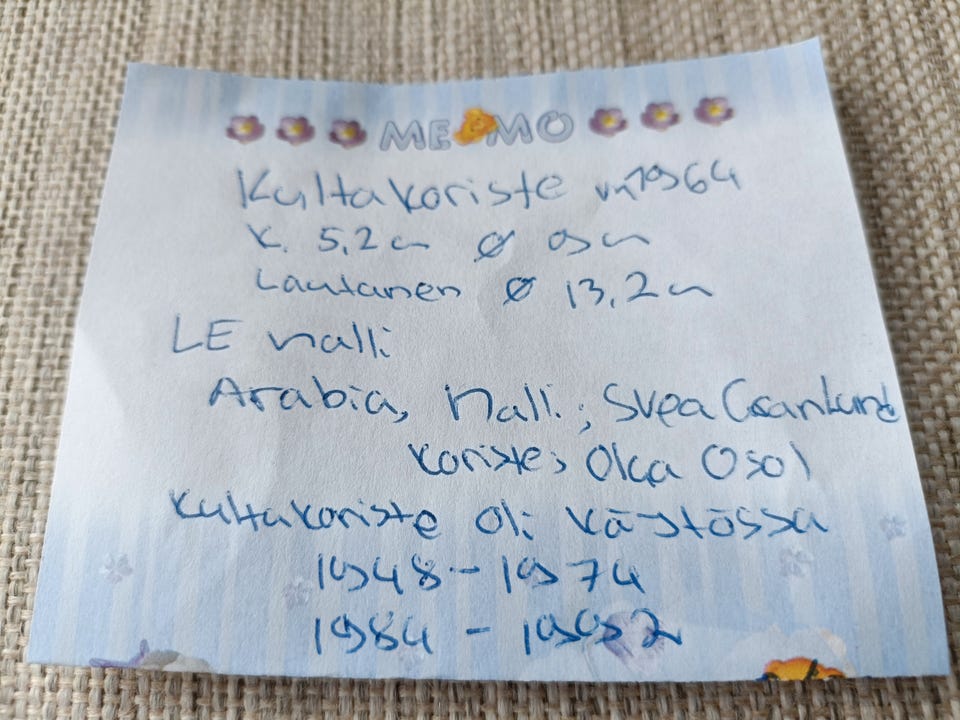 MEMO
Kultakoriste vm1964
K. 5,2cm Ø 9cm
Lautanen Ø 13,2cm
LE malli
Arabia, Malli; Svea Granlund
Koriste; Olga Osol
Kultakoriste oli käytössä
1948 - 1974
1984 - 1992